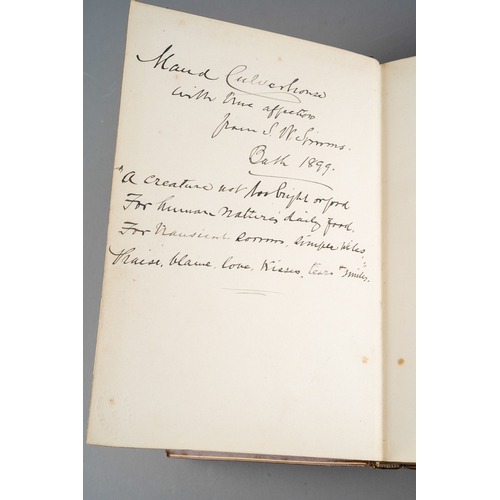 Maud Culverhouse
with true affection
from S. W. Simms.
Bath 1899.
"A creature not too bright or good
For human nature's daily food.
For transient sorrows, simple wiles,
Praise, blame, love, kisses, tears & smiles."